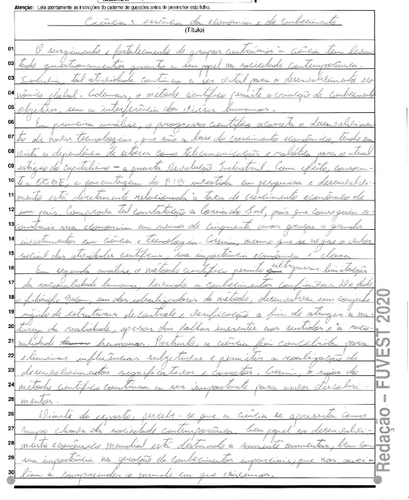 Atenção: Leia atentamente as instruções do caderno de questões antes de preencher esta folha.
Ciência: essência da economia e do conhecimento
(Título)
01 O surgimento e fortalecimento de grupos contrários à ciência tem levan-
02 tado questionamentos quanto a seu papel na sociedade contemporânea.
03 tal atividade continua a ser vital para o desenvolvimento eco-
04 nômico global. Ademais, o método científico permite a produção de conhecimento
05 sem a interferência dos vícios humanos.
06 Em primeira análise, o progresso científico acarreta o desenvolvimen-
07 to de novas tecnologias, que são a base do crescimento econômico, tendo em
08 vista a dependência de setores como telecomunicação e robótica para o atual
09 estágio do capitalismo - a quarta Revolução Industrial. Com efeito, consoan-
10 te a OCDE, a porcentagem do PIB investida em pesquisa e desenvolvi-
11 mento está diretamente relacionada à taxa de crescimento econômico de
12 um país. Comprova tal constatação a Coreia do Sul, país que conseguiu
13 sua economia em menos de cinquenta anos graças a grandes
14 investimentos em ciência e tecnologia. mesmo que se negue o valor
15 social das atividades científicas, sua importância econômica é clara.
16 Em segunda análise, o método científico permite limitações
17 da racionalidade humana, levando a conhecimentos confiáveis.
18 filósofo um dos idealizadores do método, desenvolveu um conjunto
19 rígido de estruturas de controle e verificação a fim de atingir a na-
20 tureza da realidade, apesar das falhas inerentes aos sentidos e à racio-
21 nalidade humanos. Portanto, a ciência foi concebida para
22 eliminar influências subjetivas e permitir a realização de
23 desenvolvimentos significativos e corretos. Assim, o rigor do
24 método científico continua a ser importante para novas descobri-
25 mentos.
26 Diante do exposto, percebe-se que a ciência se apresenta como
27 campo chave da sociedade contemporânea. Seu papel no desenvolvi-
28 mento econômico mundial está destinado a somente aumentar, bem como
29 sua importância na geração de conhecimentos imparciais, que nos auxi-
30 liam a compreender o mundo em que vivemos.
Redação – FUVEST 2020